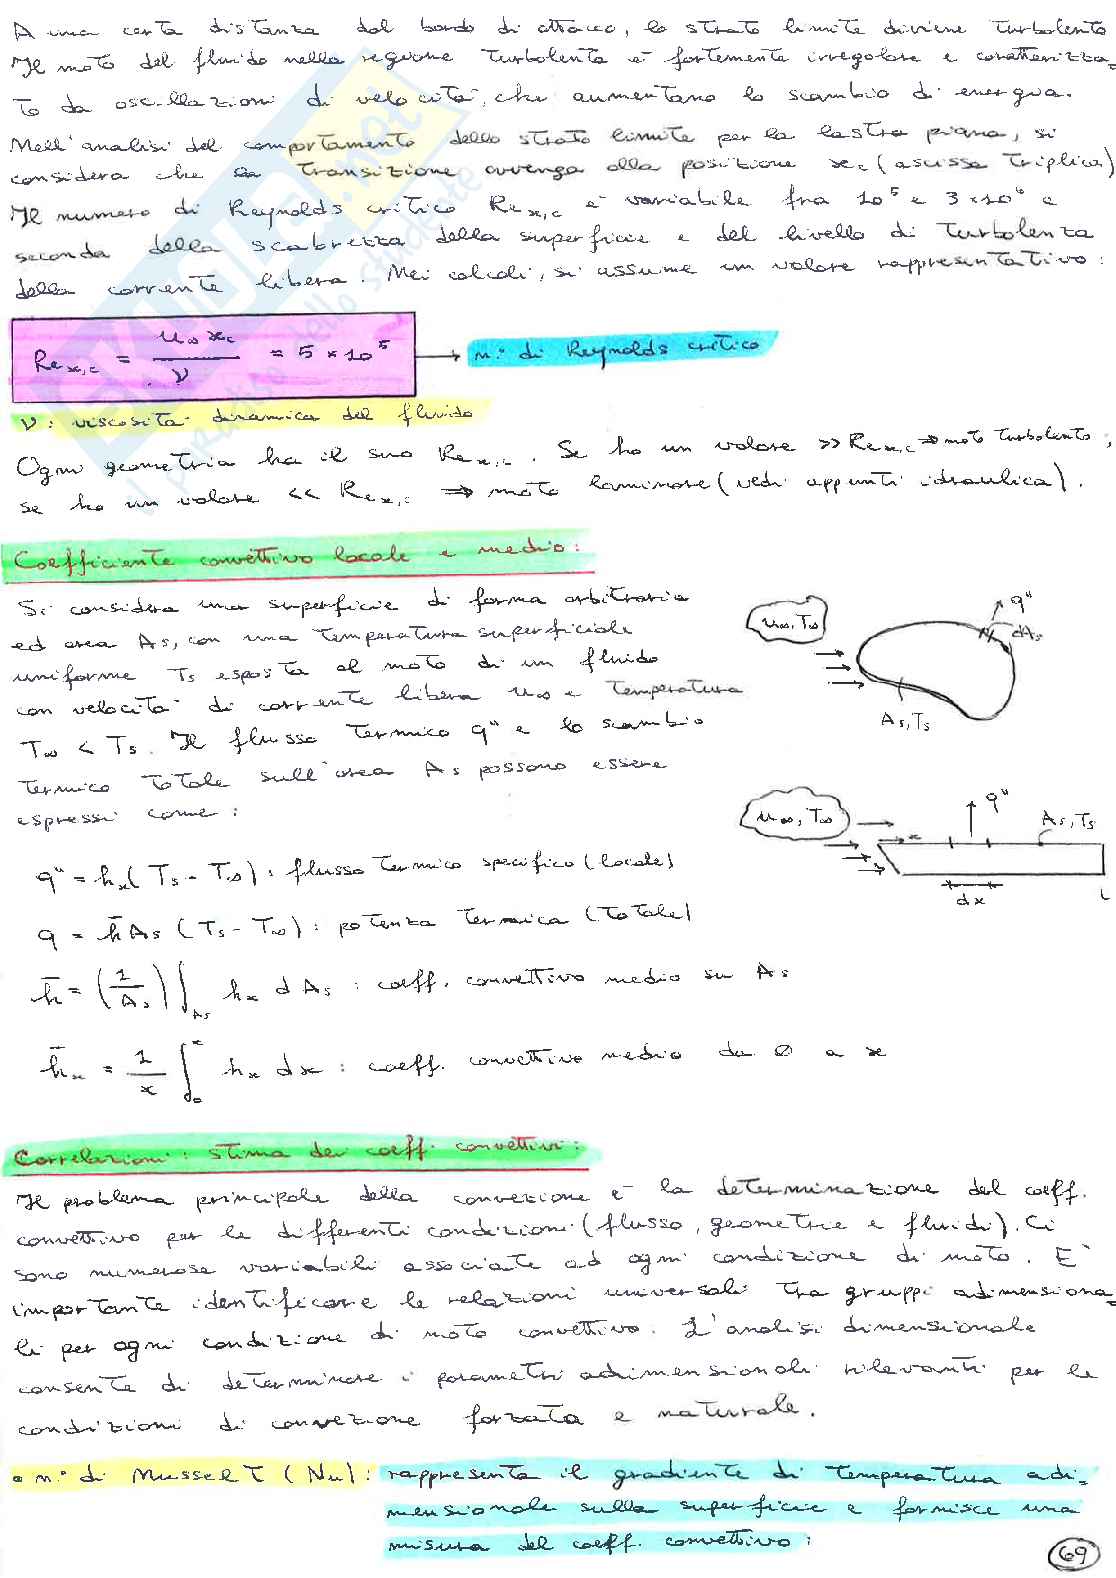 A una certa distanza dal bordo di attacco, lo strato limite diviene turbolento
Il moto del fluido nella regione turbolenta è fortemente irregolare e caratterizza-
to da oscillazioni di velocità, che aumentano lo scambio di energia.
Nell'analisi del comportamento dello strato limite per la lastra piana, si
considera che la transizione avvenga alla posizione xc (ascissa triplica)
Il numero di Reynolds critico Rex,c è variabile fra 10⁵ e 3×10⁶ e
seconda della scabrezza della superficie e del livello di turbolenza
della corrente libera. Nei calcoli, si assume un valore rappresentativo:
Rex,c = u∞ xc / ν = 5×10⁵ → n.° di Reynolds critico
ν: viscosità dinamica del fluido
Ogni geometria ha il suo Rex,c. Se ho un valore >> Rex,c ⇒ moto turbolento;
se ho un valore << Rex,c ⇒ moto laminare (vedi appunti idraulica).
Coefficiente convettivo locale e medio:
Si considera una superficie di forma arbitraria
ed area As, con una temperatura superficiale
uniforme Ts esposta al moto di un fluido
con velocità di corrente libera u∞ e temperatura
T∞ < Ts. Il flusso termico q" e lo scambio
termico totale sull'area As possono essere
espressi come:
u∞, T∞
q"
dAs
As, Ts
u∞, T∞
q"
As, Ts
x
dx
L
q" = hx (Ts - T∞): flusso termico specifico (locale)
q = h̄ As (Ts - T∞): potenza termica (totale)
h̄ = (1/As) ∫As hx dAs: coeff. convettivo medio su As
h̄x = 1/x ∫0x hx dx: coeff. convettivo medio da 0 a x
Correlazioni: stima dei coeff. convettivi:
Il problema principale della convezione è la determinazione del coeff.
convettivo per le differenti condizioni (flusso, geometrie e fluidi). Ci
sono numerose variabili associate ad ogni condizione di moto. È
importante identificare le relazioni universali tra gruppi adimensiona-
li per ogni condizione di moto convettivo. L'analisi dimensionale
consente di determinare i parametri adimensionali rilevanti per le
condizioni di convezione forzata e naturale.
• n.° di Nusselt (Nu): rappresenta il gradiente di temperatura adi-
mensionale sulla superficie e fornisce una
misura del coeff. convettivo:
69